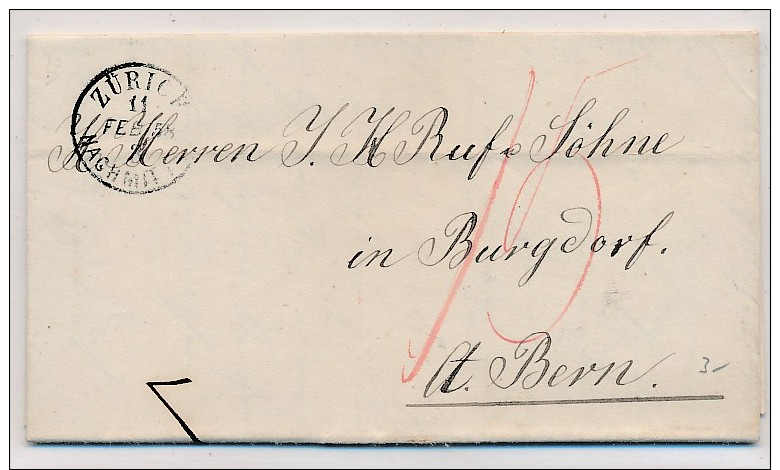 ZÜRICH
11
FEB 58
NACHMIT
H. Herren J. H Ruef & Söhne
in Burgdorf.
Ct. Bern.
15
3-